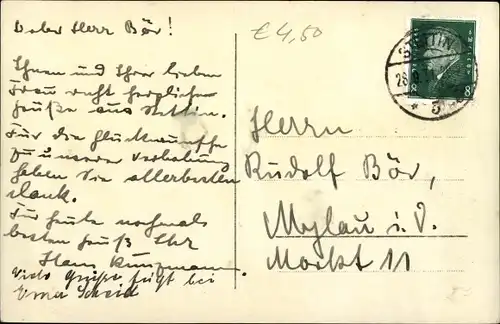 Lieber Herr Bör!
Ihnen und Ihrer lieben
Frau recht herzliche
Grüße aus Stettin.
Für die Glückwünsche
zu unserer Verlobung
haben Sie allerbesten
Dank.
Für heute nochmals
besten Gruß Ihr
Hans Kunzmann.
Viele Grüße fügt bei
Erna Scheid
€ 4,50
STETTIN
8 8
Herrn
Rudolf Bör,
Mylau i. V.
Markt 11